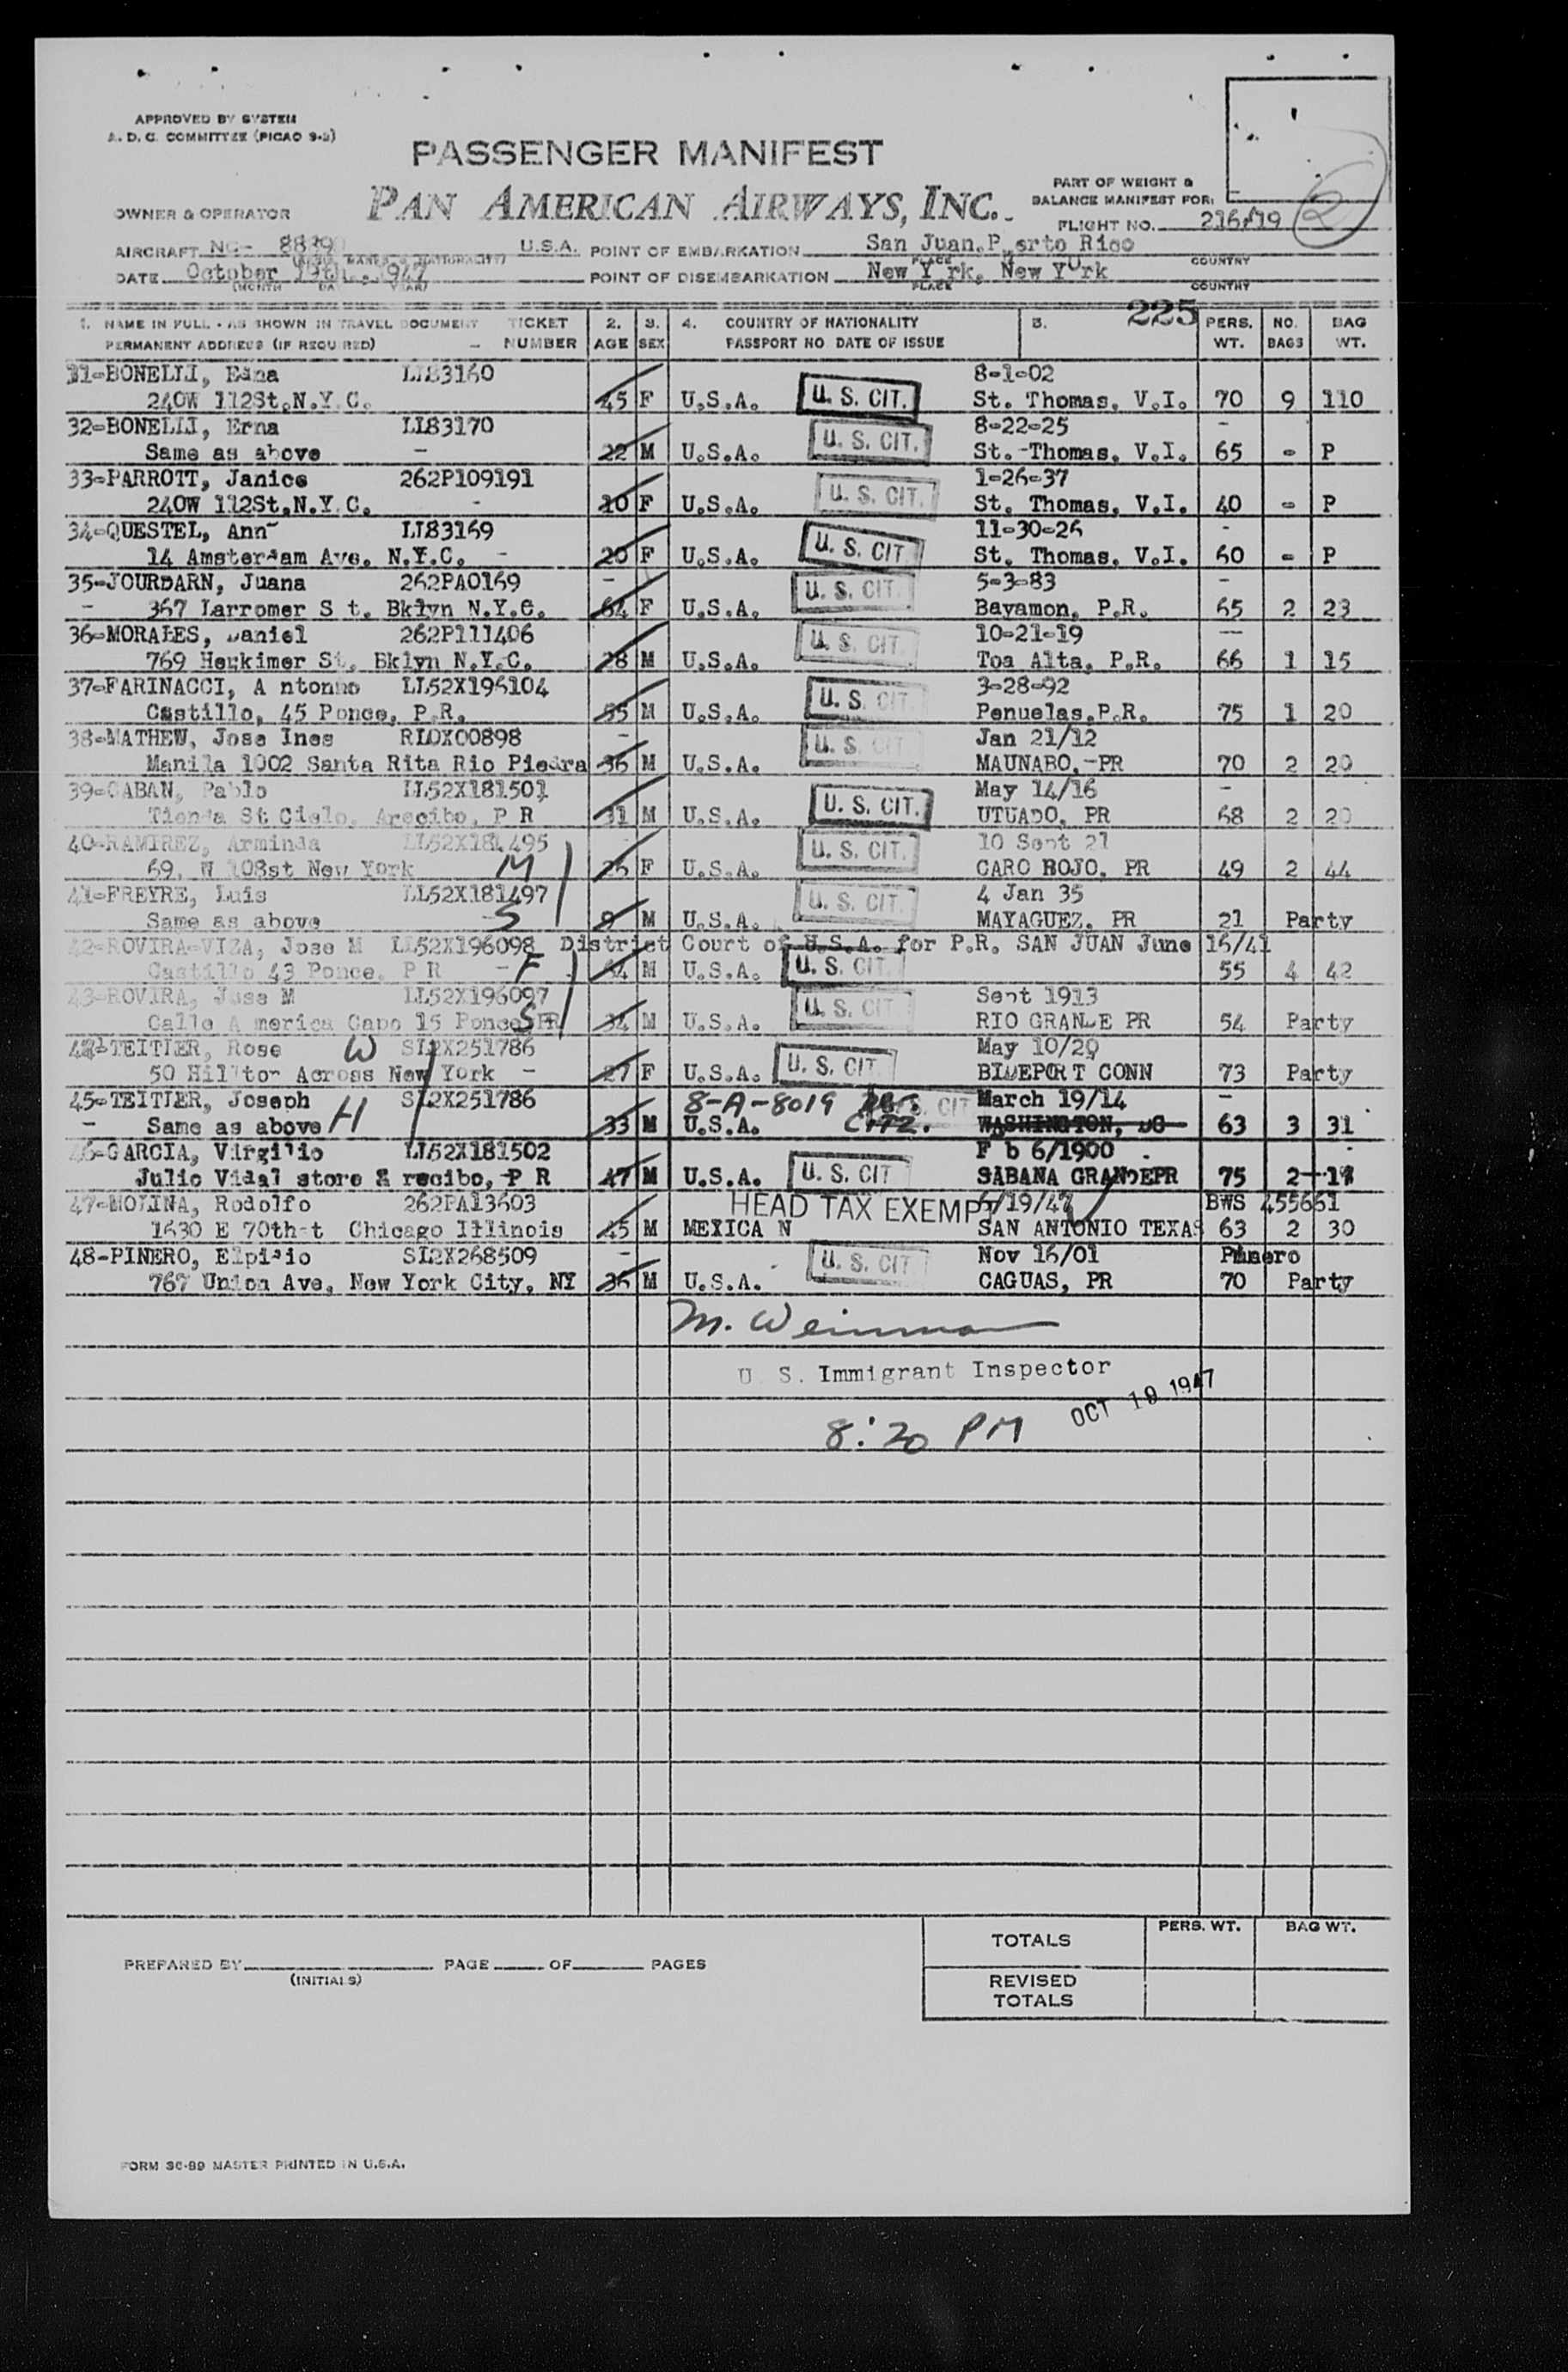 APPROVED BY SYSTEM
A. D. C. COMMITTEE (PICAO 9-2)
PASSENGER MANIFEST
PAN AMERICAN AIRWAYS, INC.
PART OF WEIGHT &
BALANCE MANIFEST FOR:
FLIGHT NO. 216/19 2
OWNER & OPERATOR
AIRCRAFT NC- 8839 U.S.A. POINT OF EMBARKATION San Juan, P erto Rico
PLACE COUNTRY
DATE October 19th, 1947 POINT OF DISEMBARKATION New Y rk, New York
(MONTH DAY YEAR) PLACE COUNTRY
225
1. NAME IN FULL - AS SHOWN IN TRAVEL DOCUMENT TICKET 2. 3. 4. COUNTRY OF NATIONALITY 5. PERS. NO. BAG
PERMANENT ADDRESS (IF REQUIRED) NUMBER AGE SEX PASSPORT NO DATE OF ISSUE WT. BAGS WT.
31-BONELLI, Edna LL83160 8-1-02
240W 112St.N.Y.C. 45 F U.S.A. U. S. CIT. St. Thomas, V.I. 70 9 110
32-BONELLI, Erna LL83170 8-22-25
Same as above 22 M U.S.A. U. S. CIT. St.-Thomas, V.I. 65 - P
33-PARROTT, Janice 262P109191 1-26-37
240W 112St.N.Y.C. 10 F U.S.A. U. S. CIT. St. Thomas, V.I. 40 - P
34-QUESTEL, Ann LL83169 11-30-26
14 Amsterdam Ave. N.Y.C. 20 F U.S.A. U. S. CIT St. Thomas, V.I. 60 - P
35-JOURDARN, Juana 262PA0169 5-3-83
367 Larromer S t. Bklyn N.Y.C. 64 F U.S.A. U. S. CIT. Bayamon, P.R. 65 2 23
36-MORALES, Daniel 262P111406 10-21-19
769 Herkimer St. Bklyn N.Y.C. 28 M U.S.A. U. S. CIT. Toa Alta, P.R. 66 1 15
37-FARINACCI, A ntonno LL52X196104 3-28-92
Castillo, 45 Ponce, P.R. 55 M U.S.A. U. S. CIT. Penuelas,P.R. 75 1 20
38-MATHEW, Jose Ines RLOX00898 Jan 21/12
Manila 1002 Santa Rita Rio Piedra 36 M U.S.A. U. S. CIT MAUNABO,-PR 70 2 20
39-CABAN, Pablo LL52X181501 May 14/16
Tienda St Cielo, Arecibo, P R 31 M U.S.A. U. S. CIT. UTUADO, PR 68 2 20
40-RAMIREZ, Arminda LL52X181495 10 Sept 21
69, W 108st New York M 26 F U.S.A. U. S. CIT. CARO ROJO, PR 49 2 44
41-FREYRE, Luis LL52X181497 4 Jan 35
Same as above S 9 M U.S.A. U. S. CIT. MAYAGUEZ, PR 21 Party
42-ROVIRA-VIZA, Jose M LL52X196098 District Court of U.S.A. for P.R. SAN JUAN June 16/41
Castillo 43 Ponce, P R - F M U.S.A. U. S. CIT. 55 4 42
43-ROVIRA, Jose M LL52X196097 Sept 1913
Calle A merica Capo 15 Ponce PR S 34 M U.S.A. U. S. CIT. RIO GRANDE PR 54 Party
44-TEITIER, Rose W SL2X251786 May 10/20
50 Hillton Across New York - 27 F U.S.A. U. S. CIT. BIDEPORT CONN 73 Party
45-TEITIER, Joseph SL2X251786 8-A-8019 March 19/14
Same as above H 33 M U.S.A. CITZ. WASHINGTON, DC 63 3 31
46-GARCIA, Virgilio LL52X181502 F b 6/1900
Julio Vidal store A recibo, P R 47 M U.S.A. U. S. CIT SABANA GRANDEPR 75 2
47-MOLINA, Rodolfo 262PA13603 HEAD TAX EXEMPT /19/47 BWS 455661
1630 E 70th-t Chicago Illinois 45 M MEXICA N SAN ANTONIO TEXAS 63 2 30
48-PINERO, Elpidio SL2X268509 Nov 16/01 Pinero
767 Union Ave, New York City, NY 36 M U.S.A. U. S. CIT CAGUAS, PR 70 Party
M. Weinman
U. S. Immigrant Inspector
OCT 19 1947
8:20 PM
PERS. WT. BAG WT.
TOTALS
PREPARED BY PAGE OF PAGES
(INITIALS)
REVISED
TOTALS
FORM 30-89 MASTER PRINTED IN U.S.A.